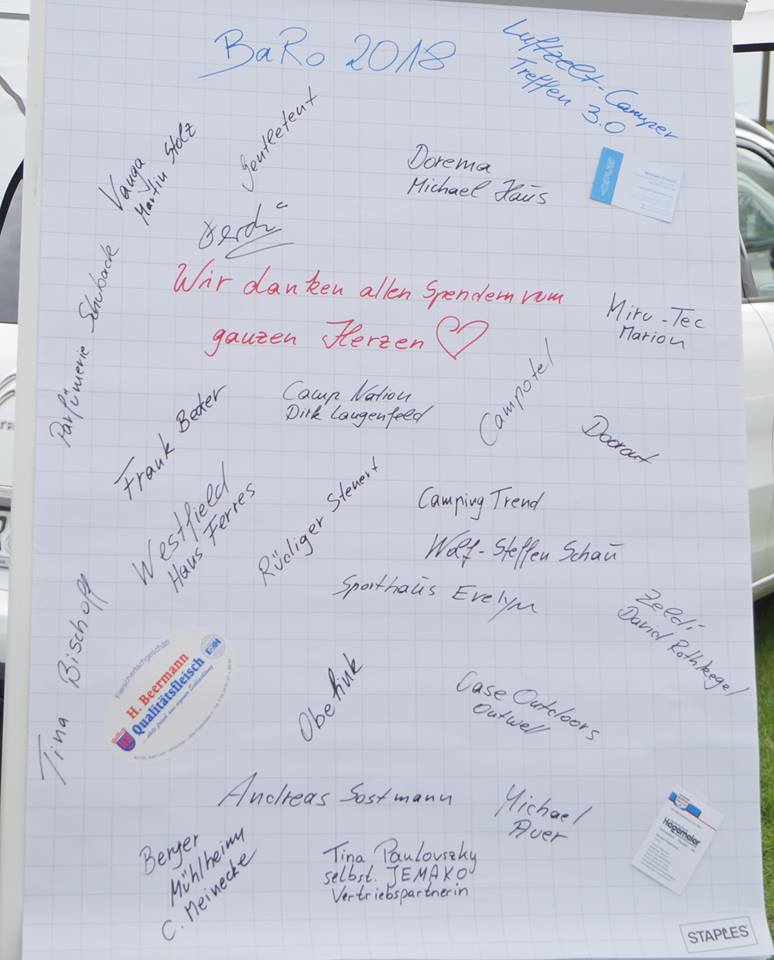 BaRo 2018
Luftzelt-Camper
Treffen 3.0
Vanga
Martin Stolz
Gentletent
Dorema
Michael Haus
Wir danken allen Spendern vom
ganzen Herzen
Miru-Tec
Marion
Parfümerie Schuback
Frank Becker
Camp Nation
Dirk Langenfeld
Campotel
Doorout
Westfield
Hans Ferres
Rüdiger Stenert
Camping Trend
Wolf-Steffen Schau
Sporthaus Evelyn
Zeldi
David Rothkegel
Tina Bischoff
Fleischerfachgeschäft
H. Beermann
Qualitätsfleisch
Obelink
Case Outdoors
Outwell
Andreas Sostmann
Michael
Auer
Hagemeier
Berger
Mühlheim
C. Meinecke
Tina Paulovszky
selbst. JEMAKO
Vertriebspartnerin
STAPLES